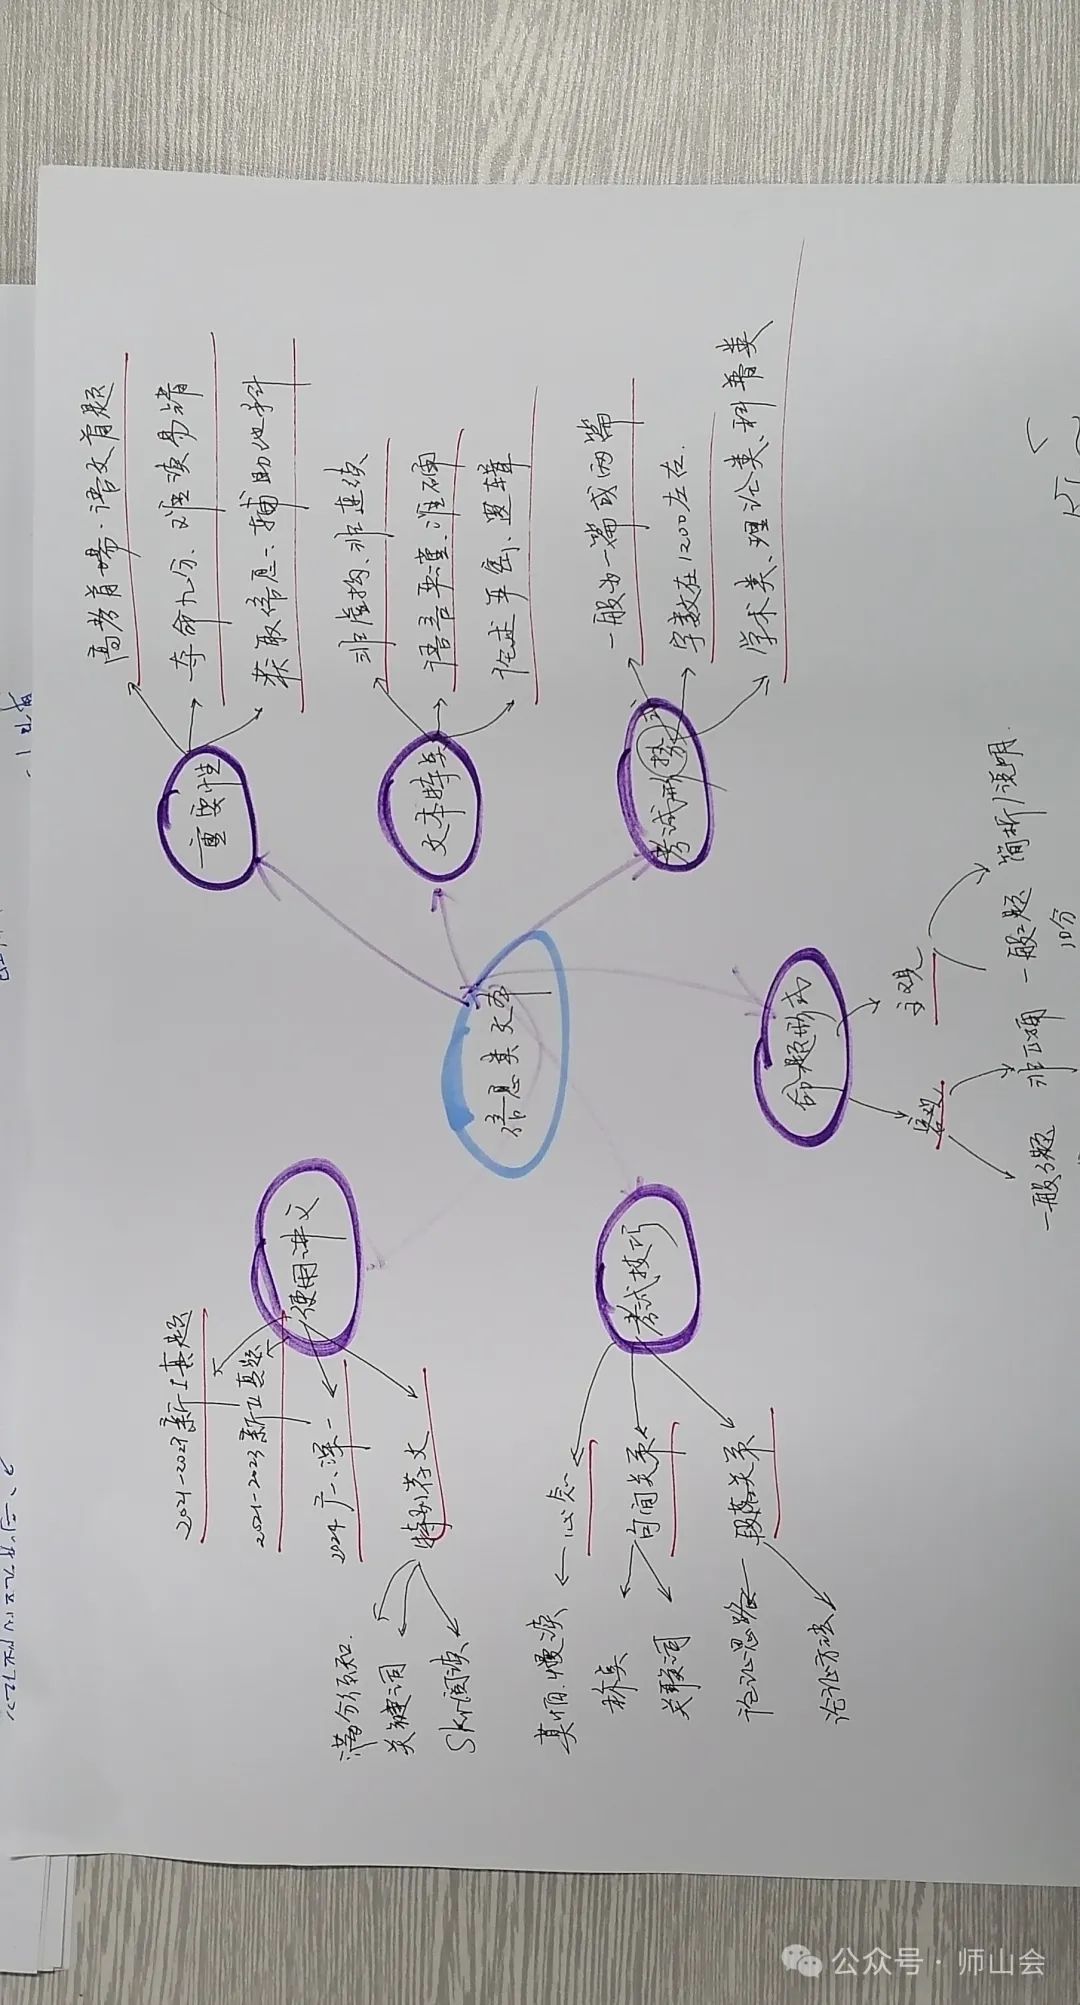 信息类文本
重要性
高考首场·语文首题
夺命九分、难读易错
获取信息、辅助他科
文本特点
非虚构、非连续
语言严谨、准确
论述严密、逻辑
考试形势
一般为一篇或两篇
字数在1200左右.
学术类、理论类、科普类
命题形式
主观
简析/说明.
一般2题
10分
客观
非正确
一般3题
考试技巧
心念
莫怕.慢读
句间关系
标点
关联词
段落关系
论证思路
论证方法
使用讲义
2021-2023新II真题
2024广一、深一
特别荐文
满分须知.
关键词
阅读
公众号·师山会